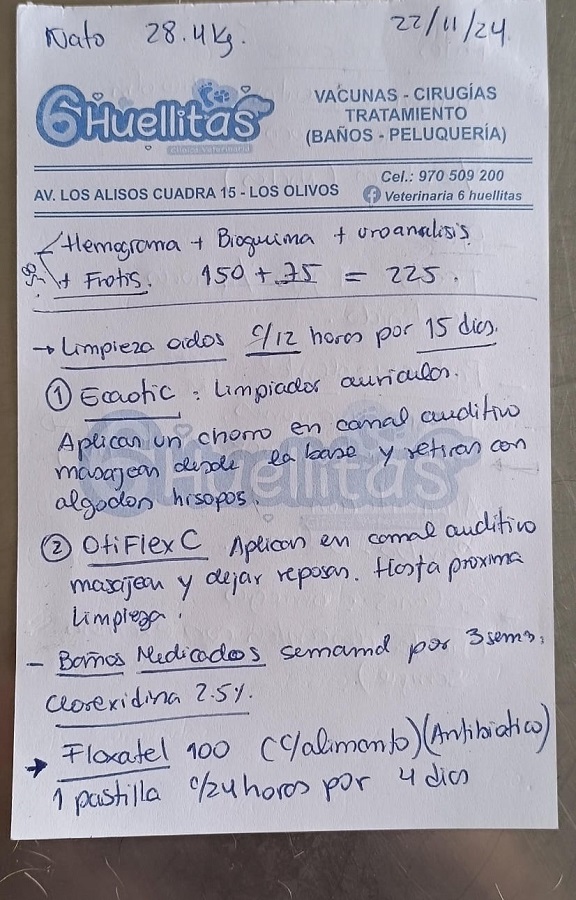 Nato 28.4 Kg. 22/11/24
6 Huellitas
Clínica Veterinaria
VACUNAS - CIRUGÍAS
TRATAMIENTO
(BAÑOS - PELUQUERÍA)
AV. LOS ALISOS CUADRA 15 - LOS OLIVOS
Cel.: 970 509 200
Veterinaria 6 huellitas
Hemograma + Bioquima + uroanalisis
+ Frotis. 150 + 75 = 225.
→ Limpieza oidos c/12 horas por 15 dias.
① Ecaotic : Limpiador auricular.
Aplican un chorro en canal auditivo
masajean desde la base y retiran con
algodon hisopos.
② OtiFlex C Aplican en canal auditivo
masajean y dejar reposar. Hasta proxima
Limpieza.
- Baños Medicados semanal por 3 sems.
Clorexidina 2.5%.
→ Floxatel 100 (c/alimento) (Antibiotico)
1 pastilla c/24 horas por 4 dias